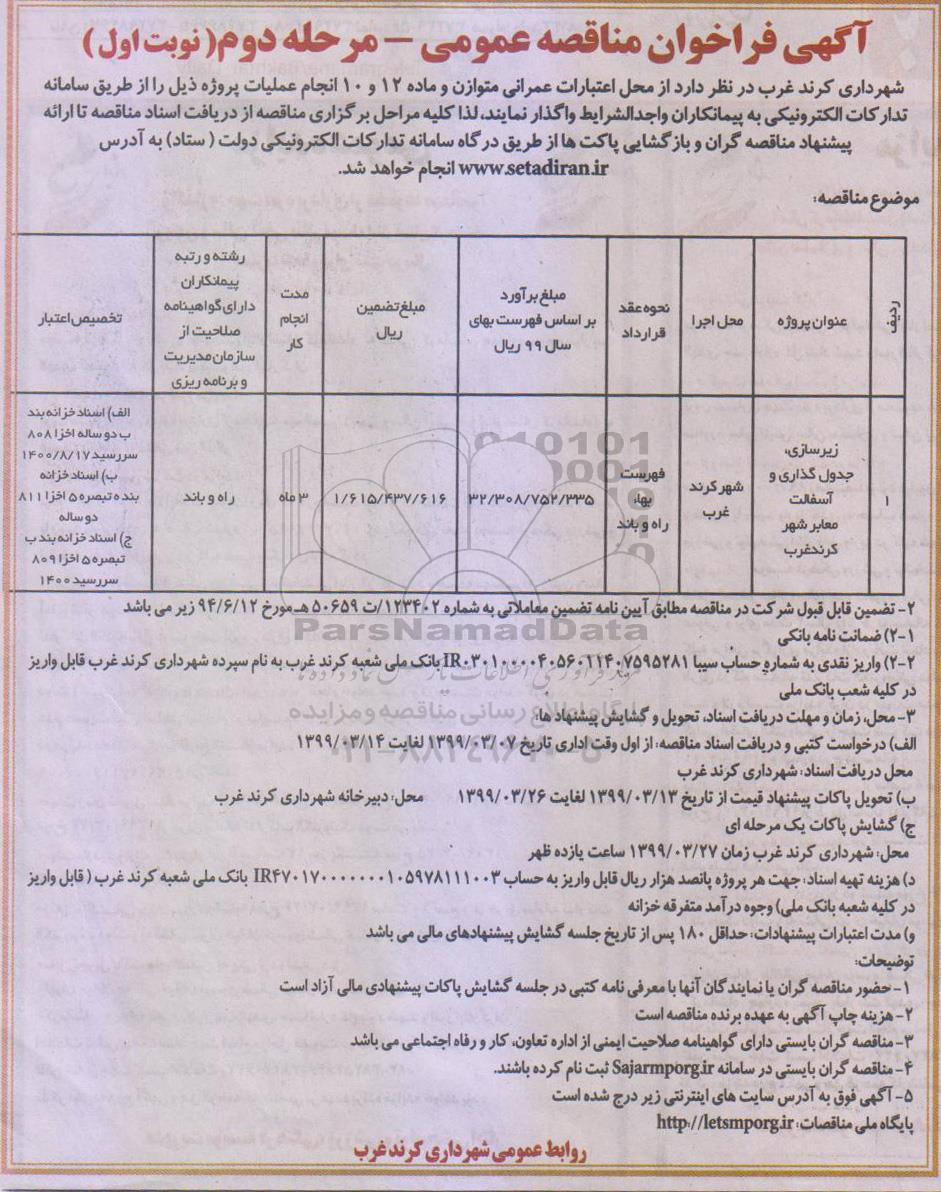 آگهی فراخوان مناقصه عمومی – مرحله دوم( نوبت اول )
شهرداری کرند غرب در نظر دارد از محل اعتبارات عمرانی متوازن و ماده ۱۲ و ۱۰ انجام عملیات پروژه ذیل را از طریق سامانه
تدارکات الکترونیکی به پیمانکاران واجدالشرایط واگذار نمایند، لذا کلیه مراحل برگزاری مناقصه از دریافت اسناد مناقصه تا ارائه
پیشنهاد مناقصه گران و بازگشایی پاکت ها از طریق درگاه سامانه تدارکات الکترونیکی دولت ( ستاد) به آدرس
www.setadiran.ir انجام خواهد شد.
موضوع مناقصه:
ردیف
عنوان پروژه
محل اجرا
نحوه عقد
قرارداد
مبلغ برآورد
بر اساس فهرست بهای
سال ۹۹ ریال
مبلغ تضمین
ریال
مدت
انجام
کار
رشته و رتبه
پیمانکاران
دارای گواهینامه
صلاحیت از
سازمان مدیریت
و برنامه ریزی
تخصیص اعتبار
۱
زیرسازی،
جدول گذاری و
آسفالت
معابر شهر
کرندغرب
شهر کرند
غرب
فهرست
بها،
راه و باند
۳۲/۳۰۸/۷۵۲/۳۳۵
۱/۶۱۵/۴۳۷/۶۱۶
۳ ماه
راه و باند
الف) اسناد خزانه بند
ب دو ساله اخزا ۸۰۸
سررسید ۱۴۰۰/۸/۱۷
ب) اسناد خزانه
بنده تبصره ۵ اخزا ۸۱۱
دو ساله
ج) اسناد خزانه بند ب
تبصره ۵ اخزا ۸۰۹
سررسید ۱۴۰۰
۲- تضمین قابل قبول شرکت در مناقصه مطابق آیین نامه تضمین معاملاتی به شماره ۱۲۳۴۰۲/ت ۵۰۶۵۹ هـ مورخ ۹۴/۶/۱۲ زیر می باشد
۲-۱) ضمانت نامه بانکی
ParsNamadData
۲-۲) واریز نقدی به شماره حساب سیبا IR۰۳۰۱۰۰۰۰۴۰۵۶۰۱۱۴۰۷۵۹۵۲۸۱ بانک ملی شعبه کرند غرب به نام سپرده شهرداری کرند غرب قابل واریز
در کلیه شعب بانک ملی
پایگاه اطلاع رسانی مناقصه و مزایده
۳- محل، زمان و مهلت دریافت اسناد، تحویل و گشایش پیشنهاد ها:
الف) درخواست کتبی و دریافت اسناد مناقصه: از اول وقت اداری تاریخ ۱۳۹۹/۰۳/۰۷ لغایت ۱۳۹۹/۰۳/۱۴
محل دریافت اسناد: شهرداری کرند غرب
ب) تحویل پاکات پیشنهاد قیمت از تاریخ ۱۳۹۹/۰۳/۱۳ لغایت ۱۳۹۹/۰۳/۲۶ محل: دبیرخانه شهرداری کرند غرب
ج) گشایش پاکات یک مرحله ای
محل: شهرداری کرند غرب زمان ۱۳۹۹/۰۳/۲۷ ساعت یازده ظهر
د) هزینه تهیه اسناد: جهت هر پروژه پانصد هزار ریال قابل واریز به حساب IR۴۷۰۱۷۰۰۰۰۰۰۰۱۰۵۹۷۸۱۱۱۰۰۳ بانک ملی شعبه کرند غرب ( قابل واریز
در کلیه شعبه بانک ملی) وجوه درآمد متفرقه خزانه
و) مدت اعتبارات پیشنهادات: حداقل ۱۸۰ پس از تاریخ جلسه گشایش پیشنهادهای مالی می باشد
توضیحات:
۱- حضور مناقصه گران یا نمایندگان آنها با معرفی نامه کتبی در جلسه گشایش پاکات پیشنهادی مالی آزاد است
۲- هزینه چاپ آگهی به عهده برنده مناقصه است
۳- مناقصه گران بایستی دارای گواهینامه صلاحیت ایمنی از اداره تعاون، کار و رفاه اجتماعی می باشد
۴- مناقصه گران بایستی در سامانه Sajarmporg.ir ثبت نام کرده باشند.
۵- آگهی فوق به آدرس سایت های اینترنتی زیر درج شده است
پایگاه ملی مناقصات: http://letsmporg.ir
روابط عمومی شهرداری کرند غرب